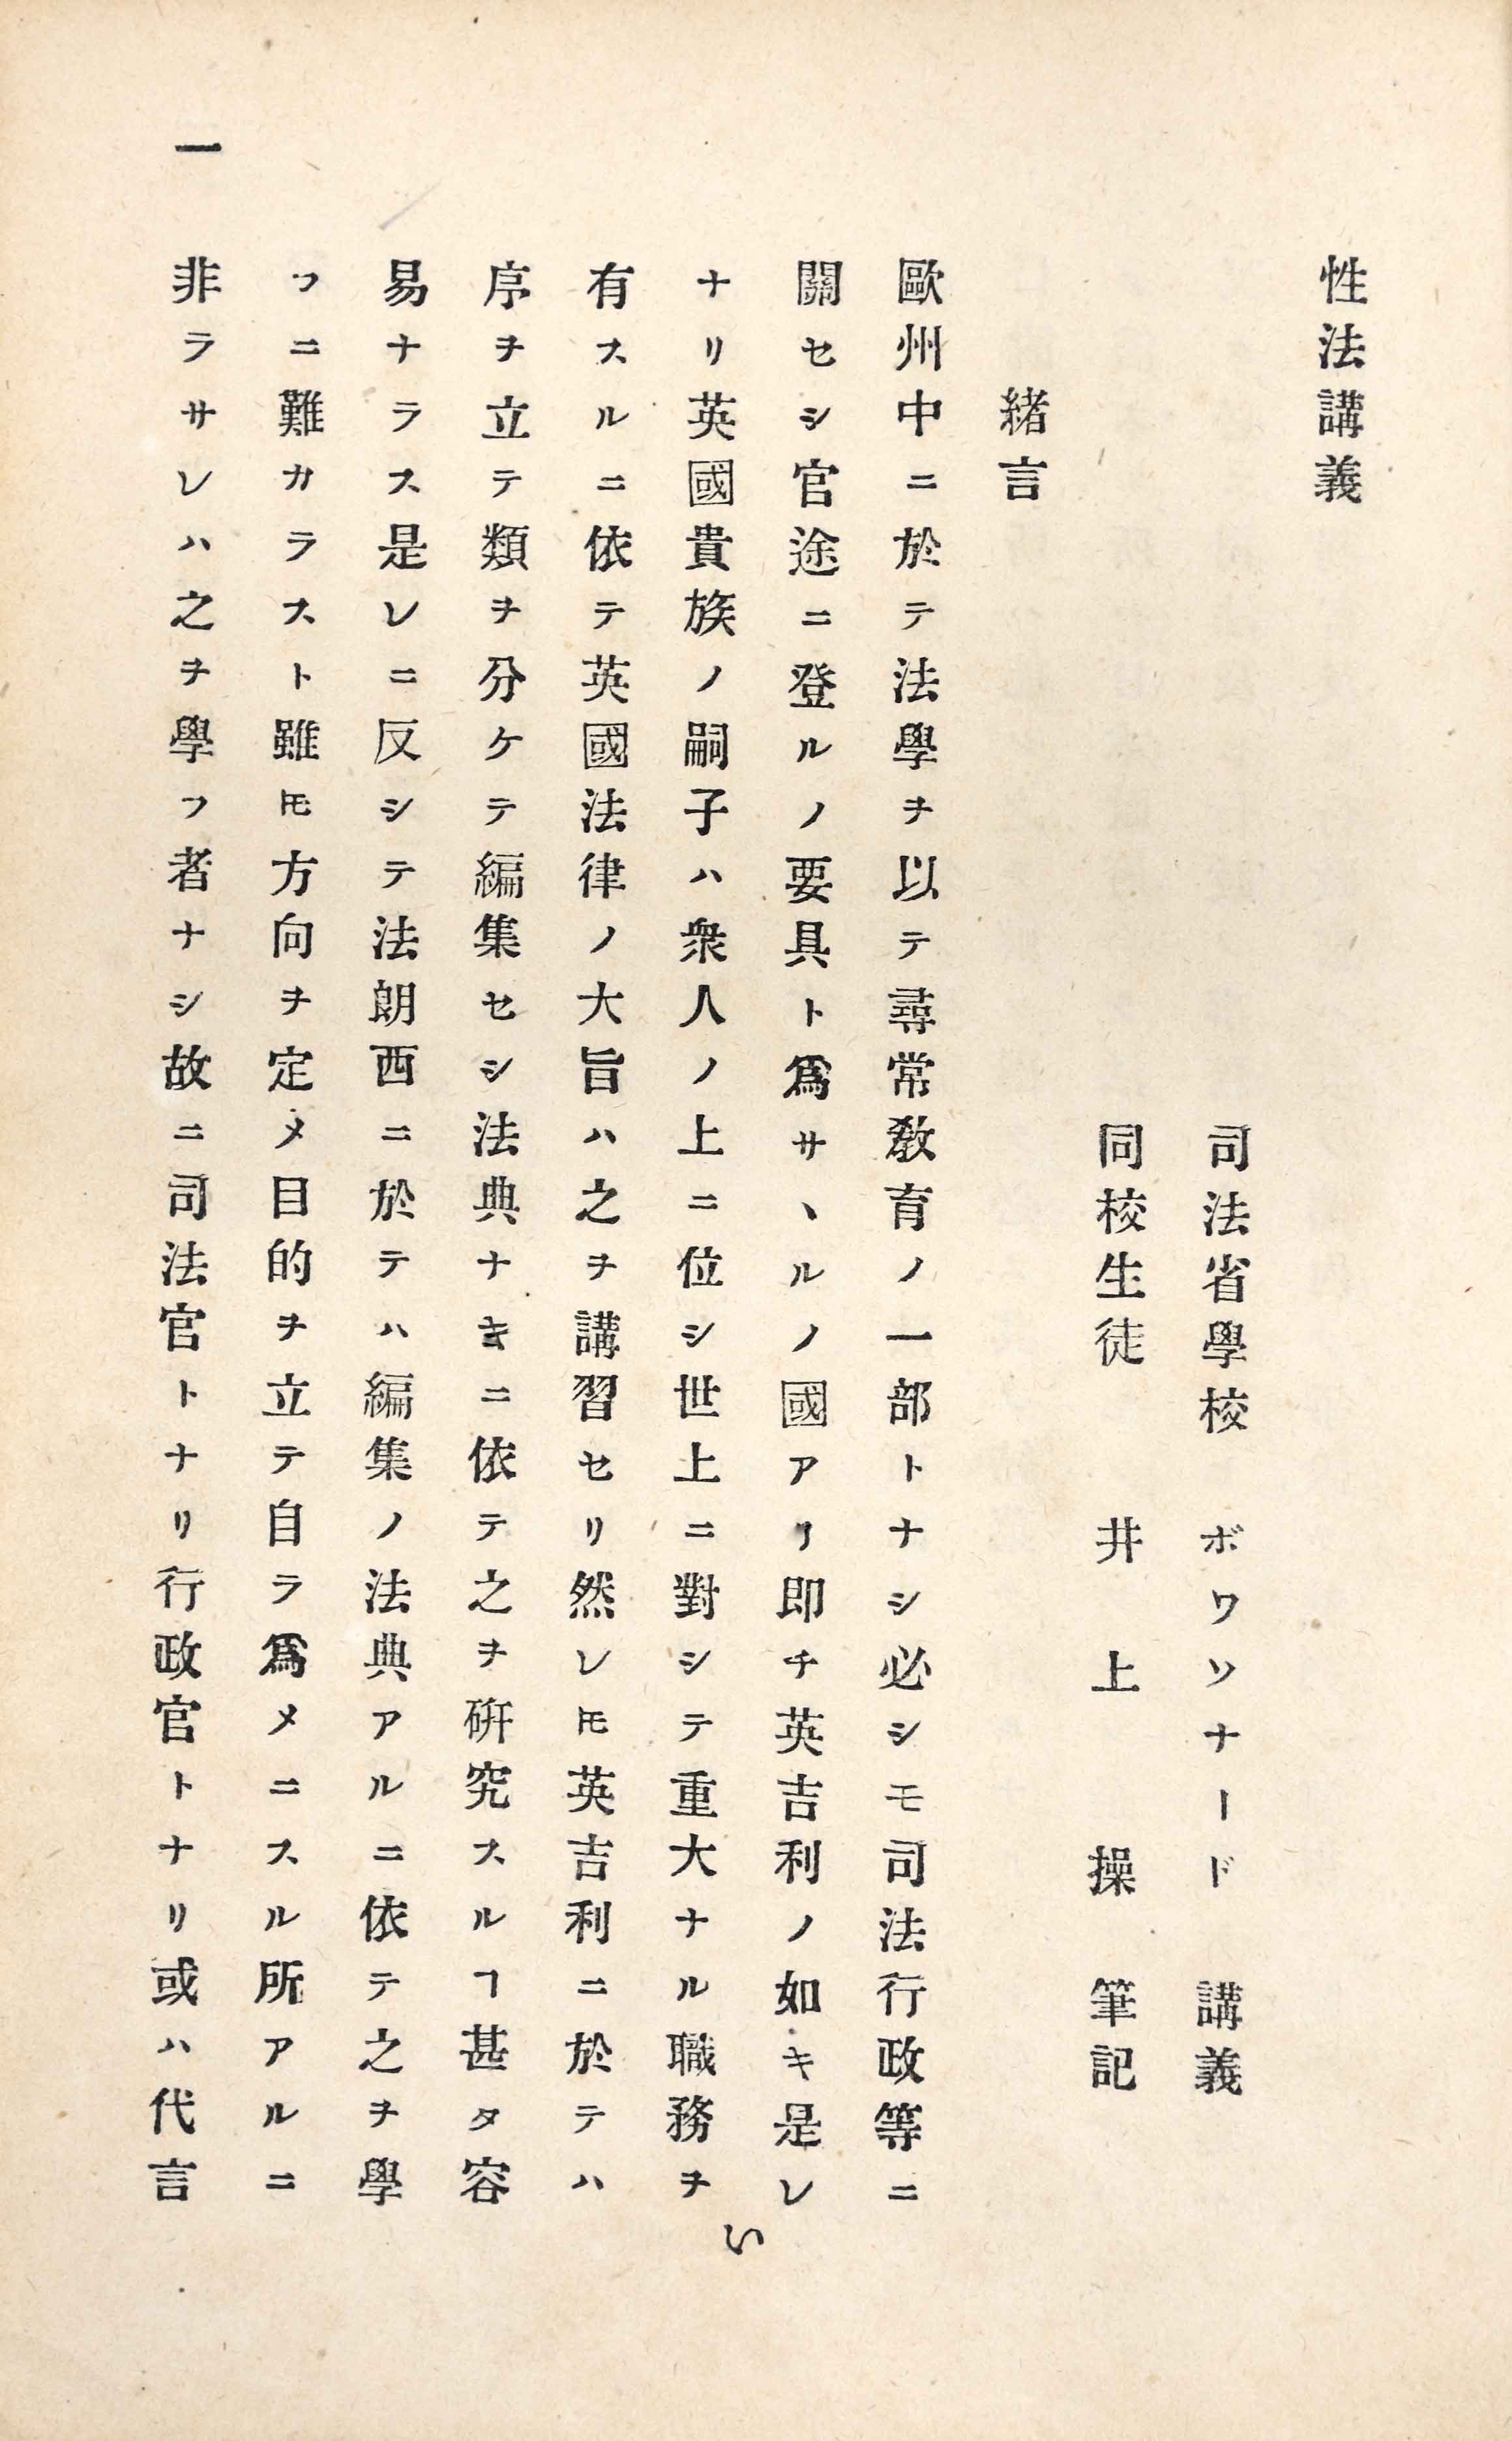 性法講義
司法省學校　ボワソナード　講義
同校生徒　井上操　筆記
緒言
歐州中ニ於テ法學ヲ以テ尋常敎育ノ一部トナシ必シモ司法行政等ニ
關セシ官途ニ登ルノ要具ト爲サヽルノ國アリ即チ英吉利ノ如キ是レ
ナリ英國貴族ノ嗣子ハ衆人ノ上ニ位シ世上ニ對シテ重大ナル職務ヲ
有スルニ依テ英國法律ノ大旨ハ之ヲ講習セリ然レ𪜈英吉利ニ於テハ
序ヲ立テ類ヲ分ケテ編集セシ法典ナキニ依テ之ヲ硏究スルヿ甚タ容
易ナラス是レニ反シテ法朗西ニ於テハ編集ノ法典アルニ依テ之ヲ學
フニ難カラスト雖𪜈方向ヲ定メ目的ヲ立テ自ラ爲メニスル所アルニ
非ラサレハ之ヲ學フ者ナシ故ニ司法官トナリ行政官トナリ或ハ代言
い
一